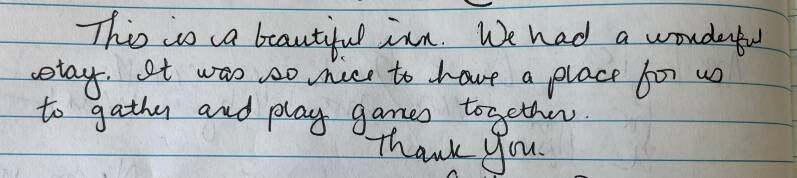 This is a beautiful inn. We had a wonderful
stay. It was so nice to have a place for us
to gather and play games together.
Thank You.